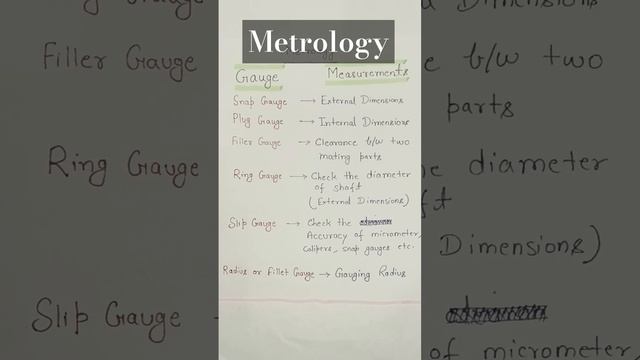 Metrology
Gauge Measurements
Snap Gauge → External Dimensions
Plug Gauge → Internal Dimensions
Filler Gauge → Clearance b/w two
mating parts
Ring Gauge → Check the diameter
of shaft
(External Dimensions)
Slip Gauge → Check the
Accuracy of micrometer,
calipers, snap gauges etc.
Radius or Fillet Gauge → Gauging Radius
Filler Gauge
Ring Gauge
Slip Gauge
Dimensions
b/w two
parts
diameter
Dimensions)
of micrometer